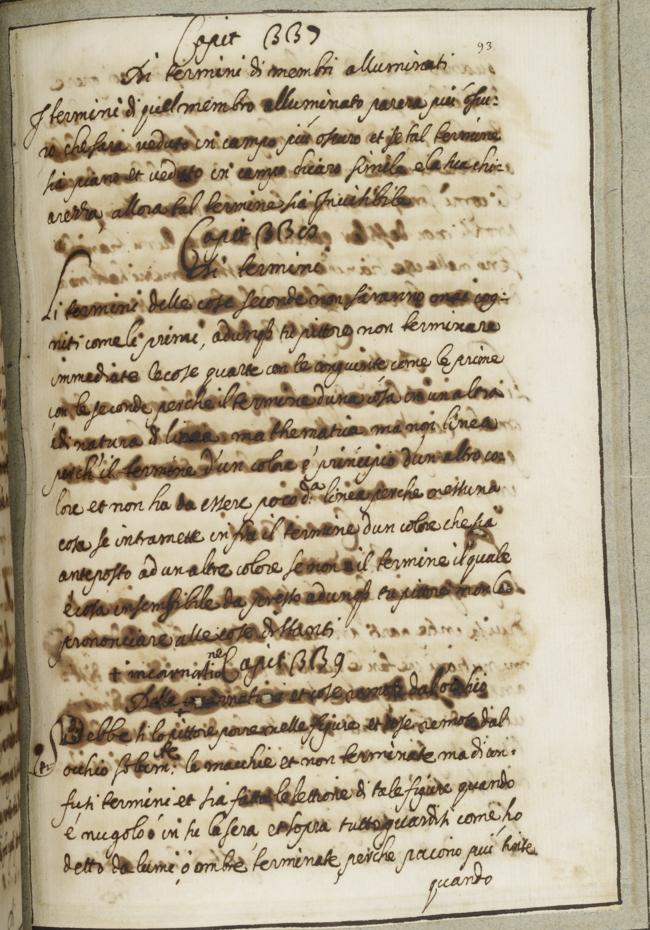 Capit 337
93
Di termini di membri alluminati
I termini di quel membro alluminato parera più oscu:
ro che sarà veduto in campo più oscuro et se tal termine
sia piano et veduto in campo chiaro simile ela sua chi:
arezza, allora tal termine sia Invisibile
Capit 338
Di termini
Li termini delle cose seconde non saranno mai cog:
niti come li primi, adunqꝫ tu pittore non terminare
immediate le cose quarte con le cinquinte come le prime
con le seconde perche il termine d'una cosa in un altra
è di natura di linea mathematica ma non linea
perch' il termine d'un colore è principio d'un altro co:
lore et non ha da essere poco da linea perche nessuna
cosa se intramette infra il termine d'un colore che sia
anteposto ad un altre colore se non è il termine il quale
è cosa insensibile da presso adunqꝫ tu pittore non la
prononciare alle cose distanti
+ incarnatione Capit 339
Delle et cose remote dal occhio
Debbe il pittore porre nelle figure et cose remote dal
occhio le macchie et non terminate ma di con:
fusi termini et sia fatta la lettione di tale figure quando
è nugolo ò in su la sera et sopra tutto guardisi come ho
detto da lumi, ò ombre terminate perche paiono più tinte
quando